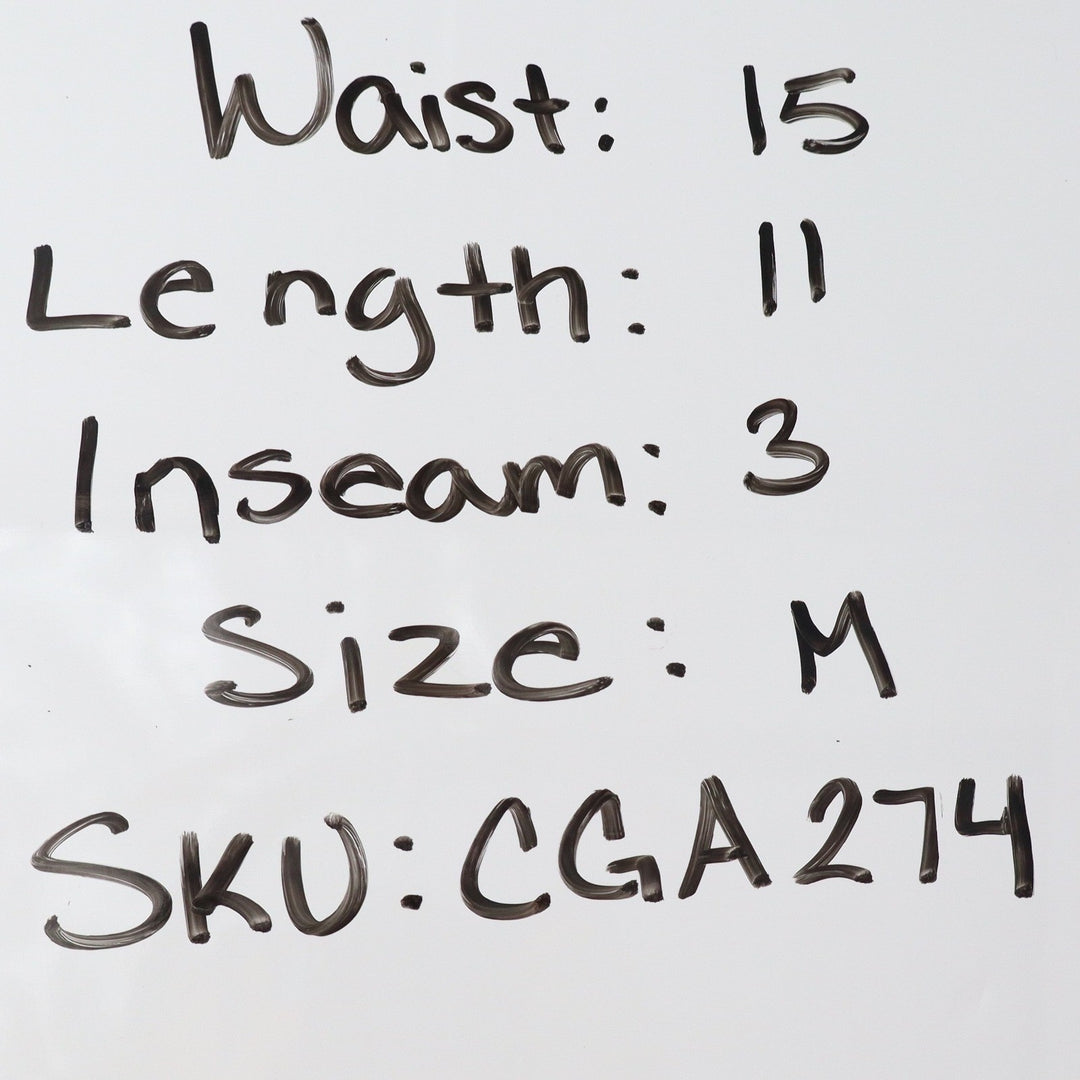 Waist: 15
Length: 11
Inseam: 3
Size: M
SKU: CGA274